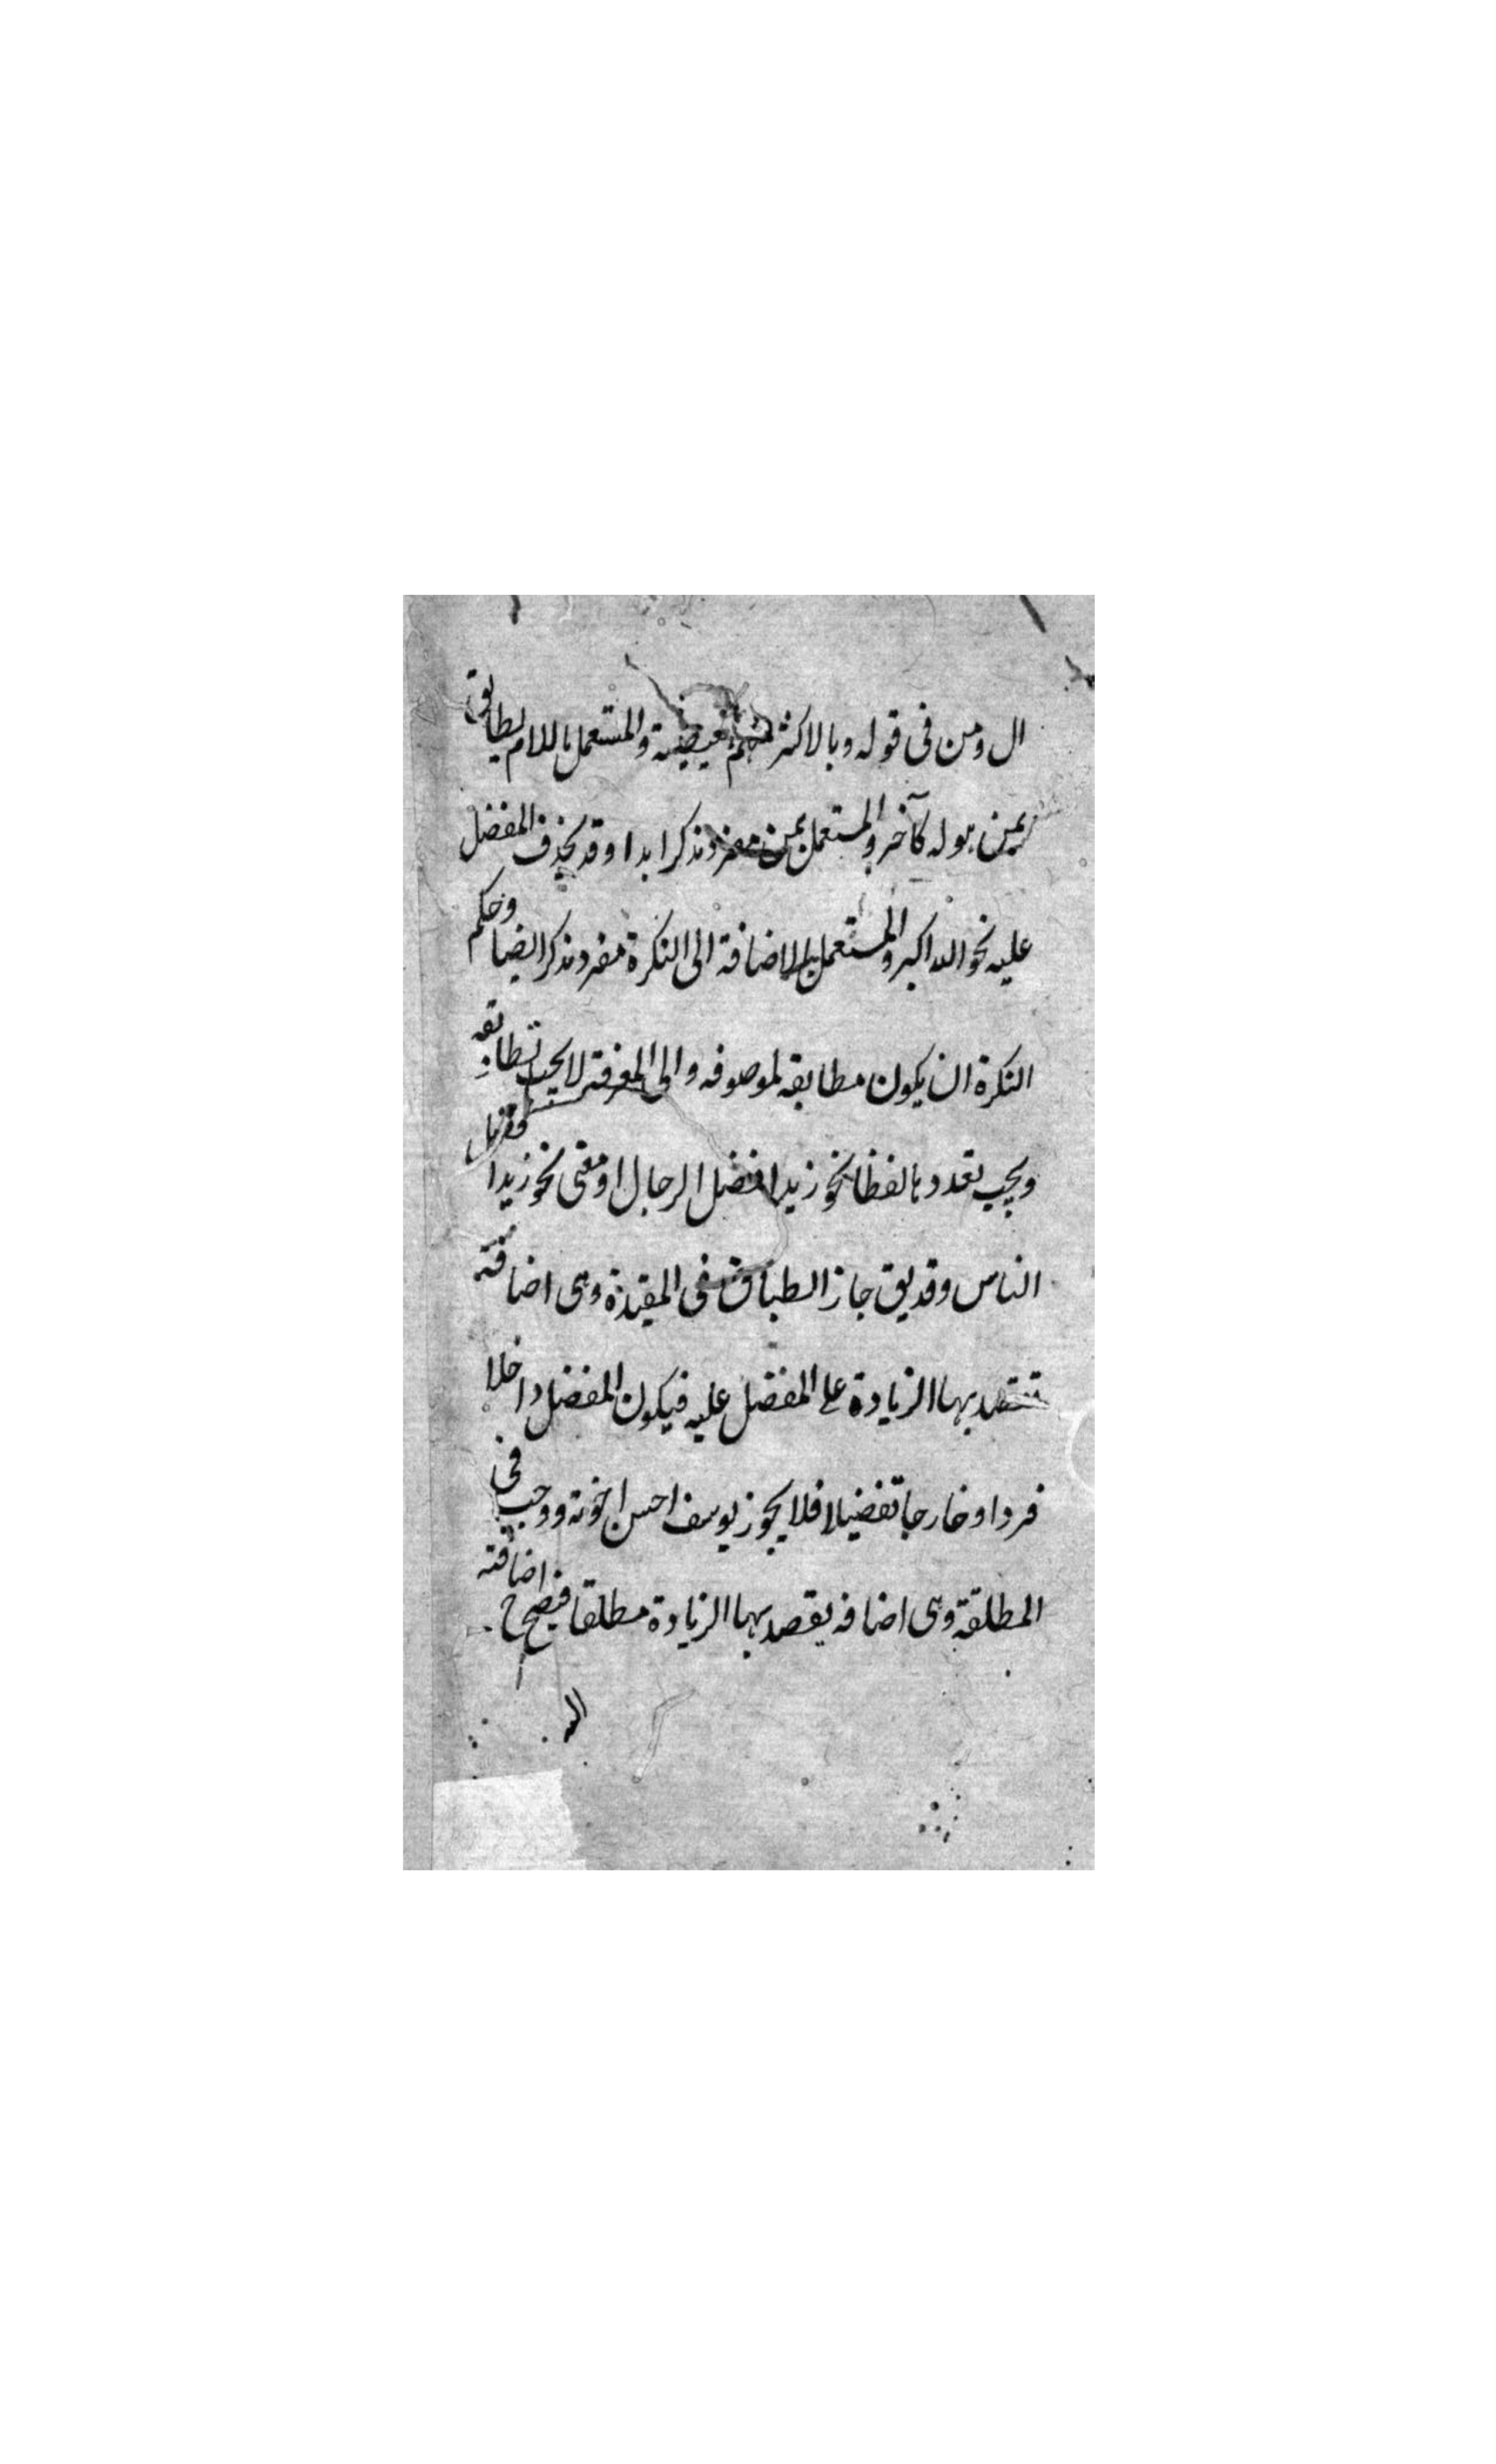 ال ومن فى قوله وبالاكثر منهم تبعيضية والمستعمل باللام يطابق
لمن هو له كآخر والمستعمل بمن مفرد مذكر ابدا وقد يحذف المفضل
عليه نحو الله اكبر والمستعمل بالاضافة الى النكرة مفرد مذكر ايضا وحكم
النكرة ان يكون مطابقه لموصوفه والى المعرفة لا يجب تطابقه
ويجب تعددها لفظا نحو زيد افضل الرجال او معنى نحو زيد ا
الناس وقد يق جاز الطباق فى المقيدة وهى اضافة
تقصد بها الزيادة على المفضل عليه فيكون المفضل داخلا
فردا وخارجا تفضيلا فلا يجوز يوسف احسن اخوته ووجب فى
المطلقة وهى اضافه يقصد بها الزيادة مطلقا فيصح ح اضافته
اليه